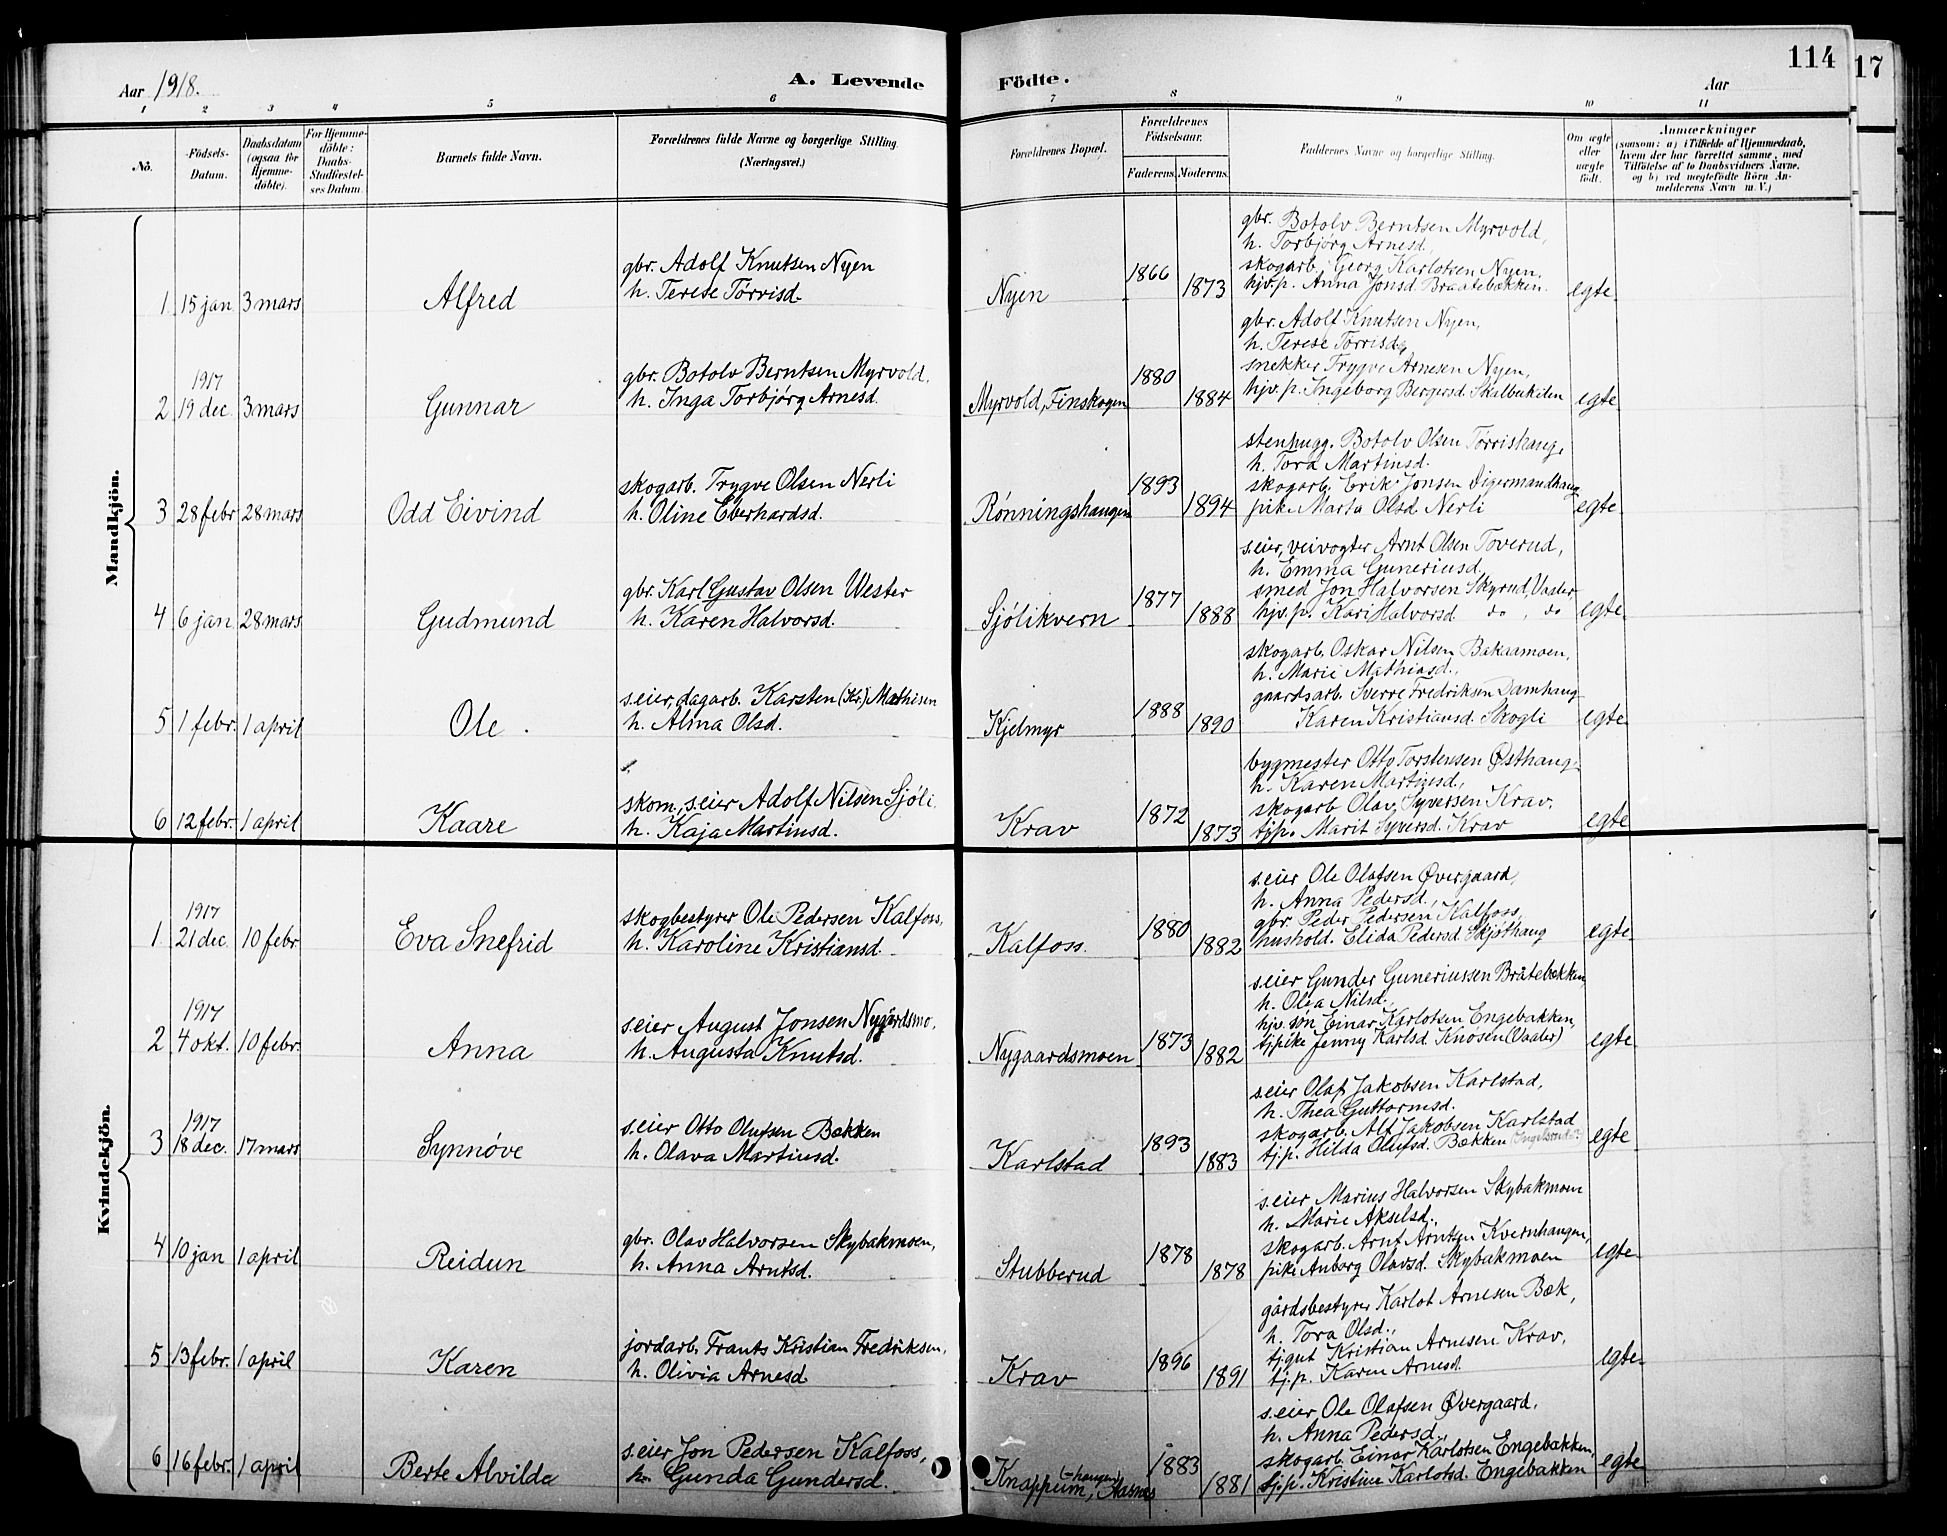 Aar 1918.
A. Levende Födte.
Aar
114
17
1 2 3 4 5 6 7 8 9 10 11
No.
Födsels-Datum.
Daabsdatum (ogsaa for Hjemmedöbte).
For Hjemmedöbte: Daabs-Stadfæstelses Datum.
Barnets fulde Navn.
Forældrenes fulde Navne og borgerlige Stilling. (Næringsvei.)
Forældrenes Bopæl.
Forældrenes Födselsaar.
Faderens. Moderens.
Faddernes Navne og borgerlige Stilling.
Om ægte eller uægte födt.
Anmærkninger
(saasom: a) i Tilfælde af Hjemmedaab, hvem der har forrettet samme, med Tilföielse af to Daabsvidners Navne. og b) ved uægtefödte Börn Anmelderens Navn m. V.)
Mandkjön.
1 15 jan 3 mars Alfred
gbr. Adolf Knutsen Nyen
h. Terese Tørrisd.
Nyen 1866 1873
gbr. Botolv Berntsen Myrvold,
h. Torbjörg Arnesd,
skogarb. Georg Karlotsen Nyen,
hjv.p. Anna Jonsd. Braatebækken.
egte
1917
2 19 dec. 3 mars Gunnar
gbr. Botolv Berntsen Myrvold,
h. Inga Torbjörg Arnesd.
Myrvold, Finskogen 1880 1884
gbr. Adolf Knutsen Nyen,
h. Terese Torrisd,
snekker Trygve Arnesen Nyen,
hjv. p. Ingeborg Bergersd. Skalbukilen
egte
3 28 febr 28 mars Odd Eivind
skogarb. Trygve Olsen Nerli
h. Oline Eberhardsd.
Rønningshaugen 1893 1894
stenhugg. Botolv Olsen Tørrishaug,
h. Tora Martinsd.
skogarb. Erik Jonsen Digermandhaug
pike Marta Olsd. Nerli
egte
4 6 jan 28 mars Gudmund
gbr. Karl Gustav Olsen Wester
h. Karen Halvorsd.
Sjölikvern 1877 1888
s.eier, veivogter Arnt Olsen Toverud,
h. Emma Guneriusd,
smed Jon Halvorsen Skyrud, Vaaler
hjv. p. Kari Halvorsd do , do
egte
5 1 febr. 1 april Ole.
s.eier, dagarb. Karsten (Kr.) Mathisen
h. Alma Olsd.
Kjelmyr 1888 1890
skogarb. Oskar Nilsen Bakaamoen,
h. Marie Mathiasd.,
gaardsarb. Sverre Fredriksen Damhaug
Karen Kristiansd. Skogli
egte
6 12 febr. 1 april Kaare
skom., s.eier Adolf Nilsen Sjöli
h. Kaja Martinsd.
Krav 1872 1873
bygmester Otto Torstensen Østhaug
h. Karen Martinsd.,
skogarb. Olav Syversen Krav,
tj.p. Marit Syversd. Krav
egte
Kvindekjön.
1917
1 21 dec. 10 febr. Eva Snefrid
skogbestyrer Ole Pedersen Kalfoss,
h. Karoline Kristiansd.
Kalfoss. 1880 1882
s.eier Ole Olafsen Øvergaard,
h. Anna Pedersd.,
gbr. Peder Pedersen Kalfoss,
hushold. Elida Pedersd. Skjøthaug
egte
1917
2 4 okt. 10 febr. Anna
s.eier August Jonsen Nygårdsmo.
h. Augusta Knutsd.
Nygaardsmoen 1873 1882
s.eier Gunder Guneriussen Bråtebekken,
h. Olea Nilsd.,
hjv. søn Einar Karlotsen Engebakken,
tj.pike Jenny Karlsd. Knösen (Vaaler)
egte
1917
3 18 dec. 17 mars Synnöve
s.eier Otto Olufsen Bækken
h. Olava Martinsd.
Karlstad 1893 1883
s.eier Olaf Jakobsen Karlstad,
h. Thea Guttormsd.
skogarb. Alf Jakobsen Karlstad
tj.p. Hilda Olufsd. Bækken
egte
4 10 jan 1 april Reidun
gbr. Olav Halvorsen Skybakmoen,
h. Anna Arntsd.
Stubberud 1878 1878
s.eier Marius Halvorsen Skybakmoen
h. Marie Akselsd.,
skogarb. Arnt Arntsen Kvernhaugen,
pike Anborg Olavsd. Skybakmoen
egte
5 13 febr. 1 april Karen
jordarb. Frants Kristian Fredriksen,
h. Olivia Arnesd.
Krav 1896 1891
gårdsbestyrer Karlot Arnesen Bæk,
h. Tora Olsd.,
tj.gut Kristian Arnesen Krav,
tj.p. Karen Arnesd.
egte
6 16 febr. 1 april Berte Alvilda
s.eier Jon Pedersen Kalfoss,
h. Gunda Gundersd.
Knappum (-haugen), Aasnes 1883 1881
s.eier Ole Olafsen Øvergaard,
h. Anna Pedersd.,
skogarb. Einar Karlotsen Engebakken,
tj.p. Kristine Karlotsd. Engebakken
egte